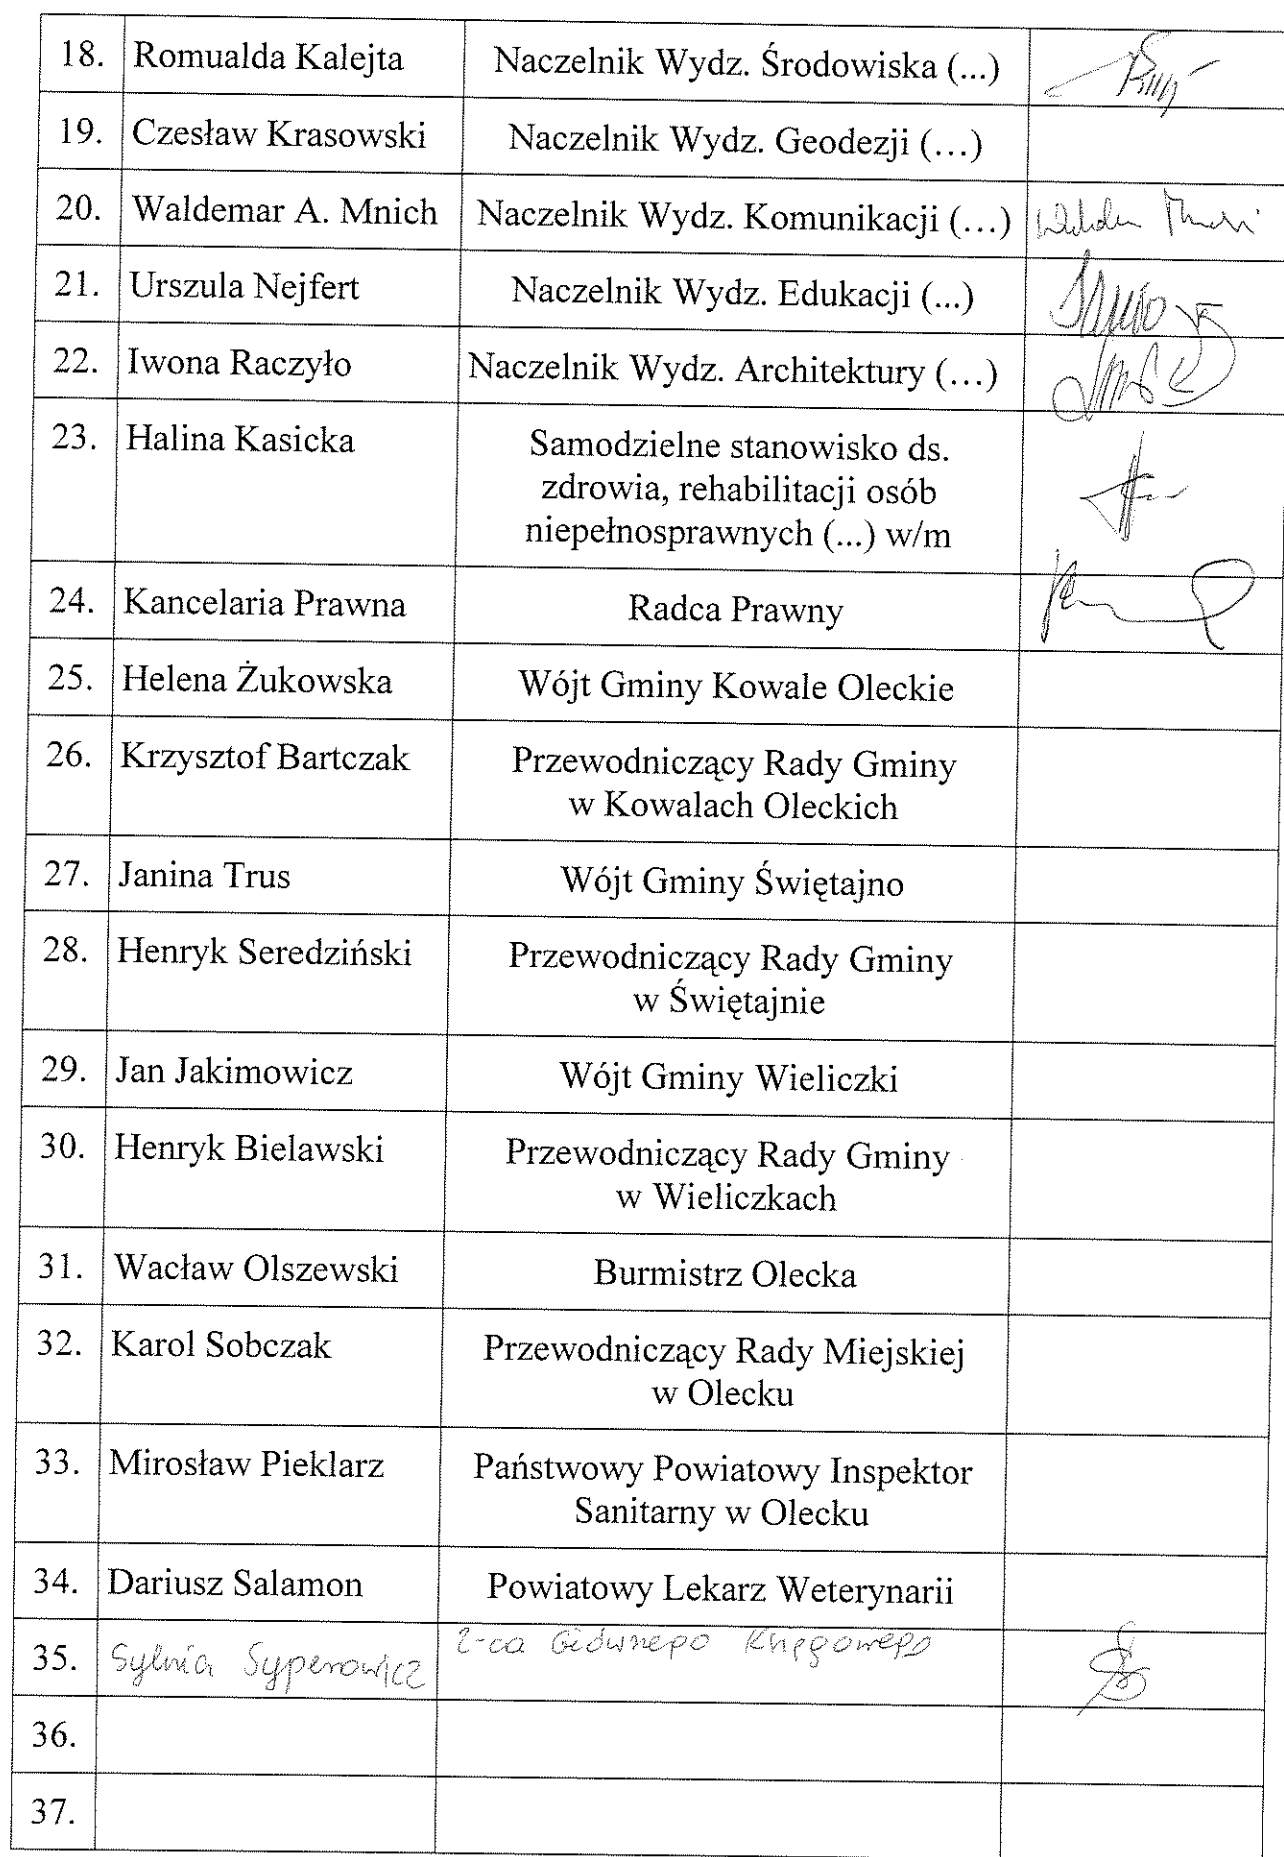 18. Romualda Kalejta Naczelnik Wydz. Środowiska (...)
19. Czesław Krasowski Naczelnik Wydz. Geodezji (…)
20. Waldemar A. Mnich Naczelnik Wydz. Komunikacji (…)
21. Urszula Nejfert Naczelnik Wydz. Edukacji (...)
22. Iwona Raczyło Naczelnik Wydz. Architektury (…)
23. Halina Kasicka Samodzielne stanowisko ds.
zdrowia, rehabilitacji osób
niepełnosprawnych (...) w/m
24. Kancelaria Prawna Radca Prawny
25. Helena Żukowska Wójt Gminy Kowale Oleckie
26. Krzysztof Bartczak Przewodniczący Rady Gminy
w Kowalach Oleckich
27. Janina Trus Wójt Gminy Świętajno
28. Henryk Seredziński Przewodniczący Rady Gminy
w Świętajnie
29. Jan Jakimowicz Wójt Gminy Wieliczki
30. Henryk Bielawski Przewodniczący Rady Gminy
w Wieliczkach
31. Wacław Olszewski Burmistrz Olecka
32. Karol Sobczak Przewodniczący Rady Miejskiej
w Olecku
33. Mirosław Pieklarz Państwowy Powiatowy Inspektor
Sanitarny w Olecku
34. Dariusz Salamon Powiatowy Lekarz Weterynarii
35. Sylwia Syperowicz Z-ca Głównego Księgowego
36.
37.